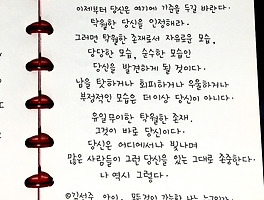 이제부터 당신은 여기에 기준을 두길 바란다.
탁월한 당신을 인정해라.
그러면 탁월한 존재로서 자유로운 모습,
당당한 모습, 순수한 모습인
당신을 발견하게 될 것이다.
남을 탓하거나 회피하거나 우울하거나
부정적인 모습은 더이상 당신이 아니다.
유일무이한 탁월한 존재.
그것이 바로 당신이다.
당신은 어디에서나 빛나며
많은 사람들이 그런 당신을 있는 그대로 존중한다.
나 역시 그렇다.